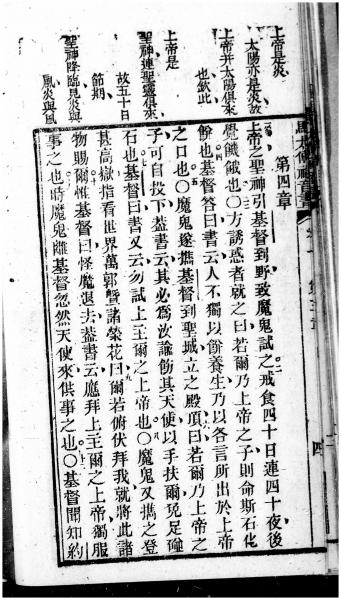 上帝是炎
太陽亦是炎故
上帝并太陽俱來
也欽此
上帝是
聖神連聖靈俱來
故五十日
節期
聖神降臨見炎與
風炎與風
馬太傳福音書
四
第四章
上帝之聖神引基督到野致魔鬼試之戒食四十日連四十夜後
覺餓也〇方誘惑者就之曰若爾乃上帝之子則命斯石化
餅也基督答曰書云人不獨以餅養生乃以各言所出於上帝
之口也〇魔鬼遂攜基督到聖城立之殿頂曰若爾乃上帝之
子可自投下蓋書云其必為汝諭飭其天使以手扶爾免足碰
石也基督曰書又云勿試上主爾之上帝也〇魔鬼又攜之登
甚高嶽指看世界萬郭暨諸榮花曰爾若俯伏拜我就將此諸
物賜爾惟基督曰怪魔退去蓋書云應拜上主爾之上帝獨服
事之也時魔鬼離基督忽然天使來供事之也〇基督聞知約